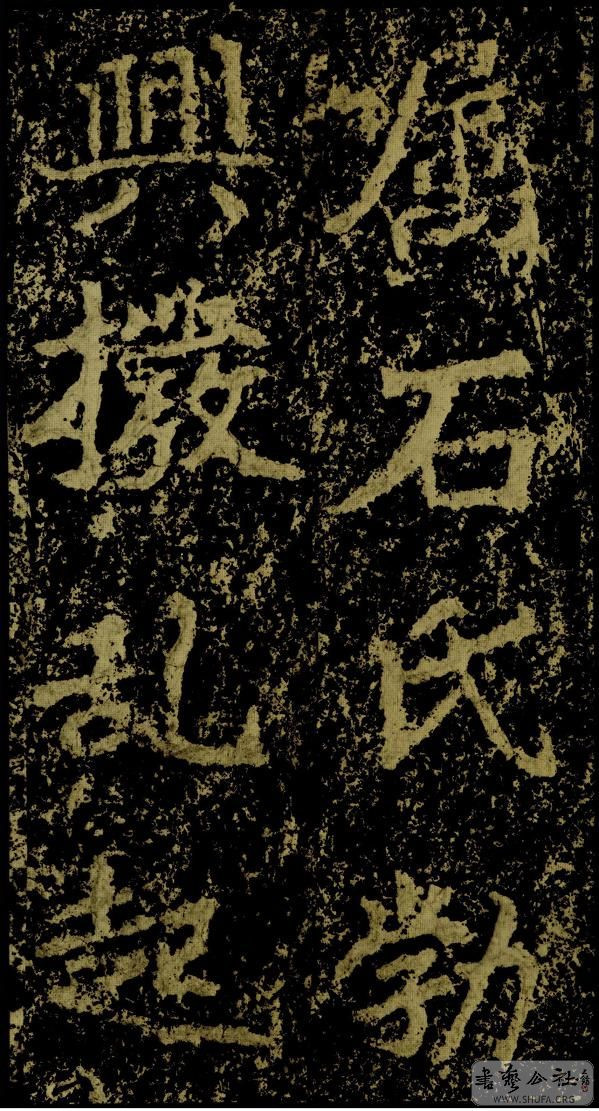 属石氏勃
興撥乱起
書藝公社
WWW.SHUFA.ORG